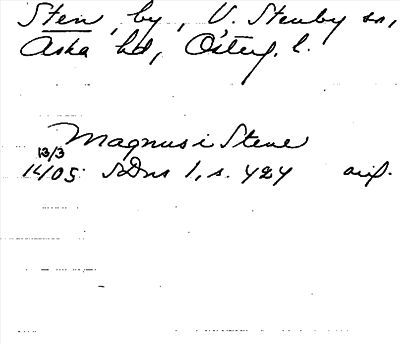 Sten, by, V. Stenby sn,
Aska hd, Österg. l.
Magnus i Stene
13/3
1405 SDns 1, s. 424 orig.